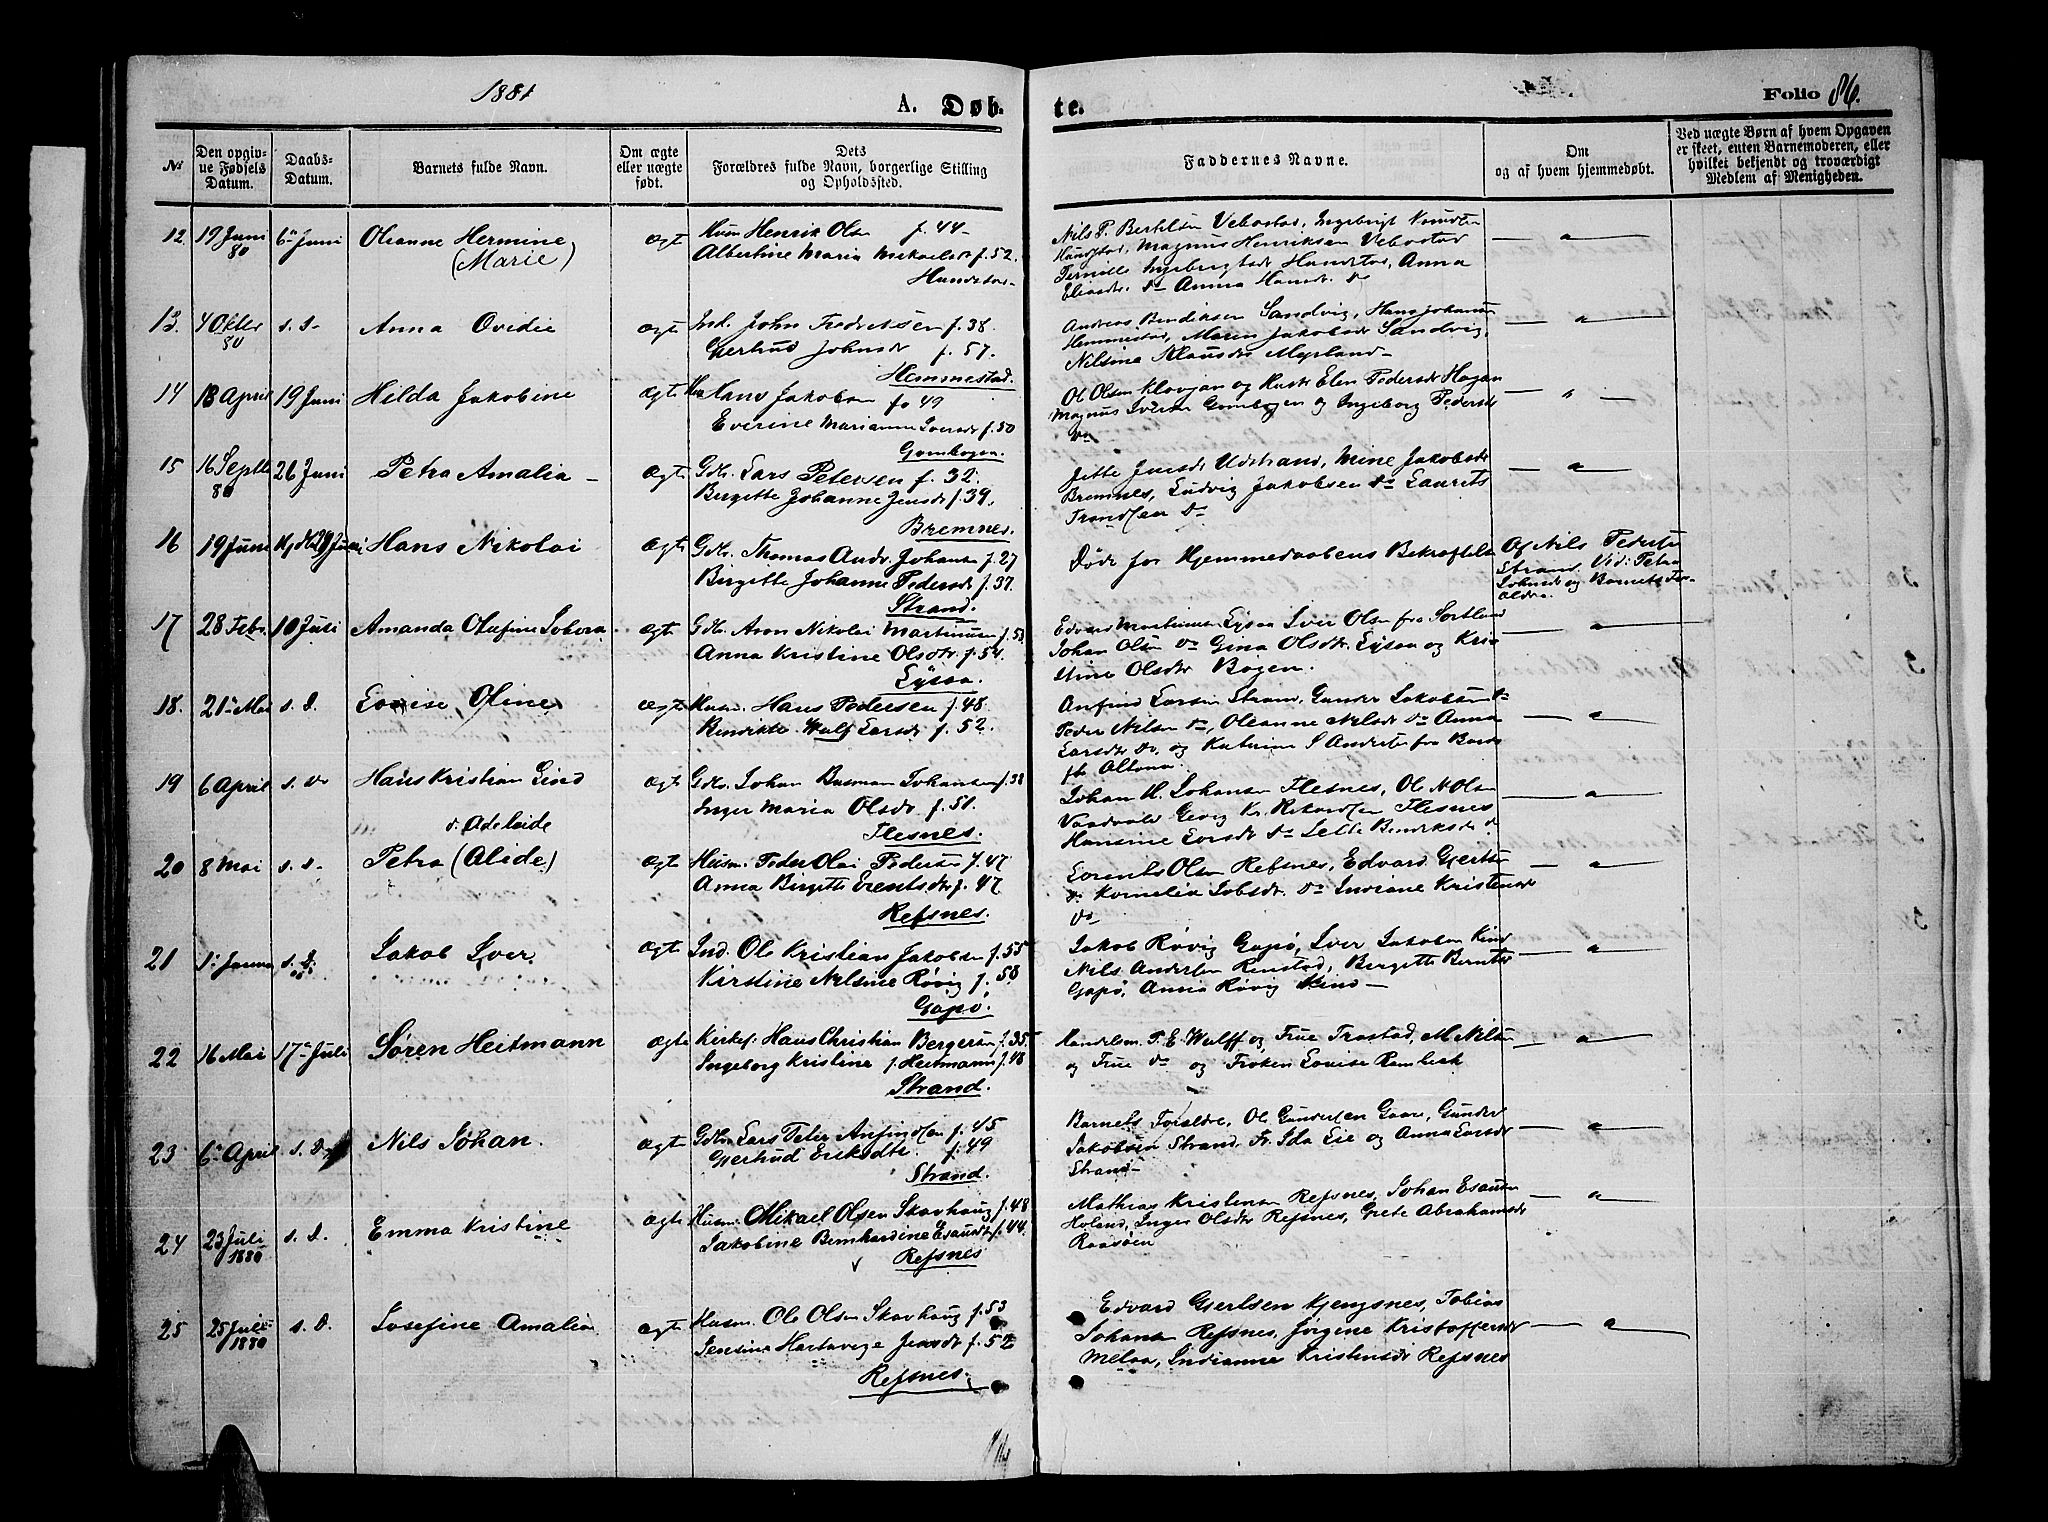 1881
A. Døb-
te.
Folio 86.
No
Den opgivne Fødsels Datum.
Daabs-Datum.
Barnets fulde Navn.
Om ægte eller uægte født.
Dets Forældres fulde Navn, borgerlige Stilling og Opholdssted.
Faddernes Navne.
Om og af hvem hjemmedøbt.
Ved uægte Børn af hvem Opgaven er skeet, enten Barnemoderen, eller hvilket bekjendt og troværdigt Medlem af Menigheden.
12. 19 Juni 80 6te Juni Oleanne Hermine (Marie) ægte Husm Henrik Olsen f. 44
Albertine Maria Mikaelsdr f. 52.
Hundstad
Nils P. Bertelsen Vebostad, Ingebrigt Knudsen
Hundstad, Magnus Henriksen Vebostad
Pernille Ingebrigtsdr Hundstad, Anna
Eliasdr. do Anna Hansdr. do
13. 4 Okter 80 s. d. Anna Ovidie ægte Ind. John Fredriksen f. 38.
Gjertrud Johnsdr f. 57.
Hemmestad.
Andreas Bendiksen Sandvig, Hans Johansen
Hemmestad, Maren Jakobsdr Sandvig,
Nilsina Klausdr Myrland
14 18 April 19 Juni Hilda Jakobine ægte Hans Jakobsen fo 49
Everine Marianna Iversdr f. 50
Gombogen
Ol Olsen Klovjan og Hustr Elen Pedersdr Hagan
Magnus Iversen Gombogen og Ingeborg Pedersdr
do
15 16 Septb 80 26 Juni Petra Amalia ægte Gdb. Lars Petersen f. 32.
Birgitte Johanne Jensdr f. 39.
Bremnes.
Jette Jensdr Udstrand, Mine Jakobsdr
Bremnes, Ludvig Jakobsen do Laurits
Trondsen do
16 19 Juni Hj.d. 29 Juni Hans Nikolai ægte Gdb. Thomas Andr. Johansen f. 27
Birgitte Johanne Pedersdr f. 37.
Strand.
Døde før Hjemmedaabens Bekræftelse
Af Nils Pedersen
Strand. Vid: Petra
og Barnets For-
ældre.
17 28 Febr. 10 Juli Amanda Olufine ægte Gdb. Aron Nikolai Martinusen f. 53
Anna Kristine Olsdtr. f. 54.
Lysaa.
Edvard Martinusen Lysaa Iver Olsen fra Sortland
Johan Olsen do Gina Olsdtr. Lysaa og Kris
tine Olsdtr Bogen.
18. 21de Mai s. D. Lovise Oline ægte Husm. Hans Pedersen f. 48.
Bendikte Wulf Larsdr f. 52.
Anfind Larsen Strand, Gunder Jakobsen do
Peder Nilsen do, Oleanne Nilsdr do Anna
Larsdtr do. og Katrine S Andrsen fra
Altona.
19 6 April s. D. Hans Kristian Lind ægte Gdb. Johan Johansen f. 38
Inger Maria Olsdr. f. 51.
Flesnes.
Johan H. Johansen Flesnes, Ole N Olsen
Kr. Rikardsen Flesnes
Hansine Larsdr do Lette Bendiksdr do
20 8 Mai s. d. d. Adelaide
Petra (Alide) ægte Husm. Peder Olai Pedersen f. 47
Anna Birgitte Lrentsdr f. 47
Refsnes.
Lorents Olsen Refsnes, Edvard Gjertsen
do Kornelia Jobsdr. do Indiane Kristensdr
do
21 1. Janua s. D. Jakob Iver ægte Ind. Ole Kristian Jakobsen f. 55
Kirstine Nilsine Røvig f. 58
Gapø.
Jakob Røvig Gapø, Iver Jakobsen Kind
Nils Andersen Renstad, Birgitte Berntsdr
Gapø, Anna Røvig Kind
22 16 Mai 17de Juli Søren Heitmann ægte Kirkes: Hans Christian Bergersen f. 35
Ingeborg Kristine f. Heitmann f. 48
Strand.
Handelsm. P. E. Wulff og Frue Trastad, M. Nilsen
og Frue do og Frøken Lovise Rambech
23 6te April s. D. Nils Johan. ægte Gdbr. Lars Peter Anfindsen f. 45
Gjertrud Eriksdtr. f. 49
Strand.
Barnets Forældre, Ol Gundersen Gaare, Gunder
Jakobsen Strand, Fr. Ida Lie og Anna Larsdr
Strand
24 23 Juli 1880 s. d. Emma Kristine ægte Husm. Mikael Olsen Skavhaug f. 48
Jakobine Bernhardine Esausdr f. 44.
Refsnes
Mathias Kristensen Refsnes, Johan Esausen
Holand, Inger Olsdtr Refsnes, Grete Abrahamsdr
25 25 Juli 1880 s. D. Josefine Amalia ægte Husm. Ole Olsen Skavhaug f. 53
Jensine Hartavige Jensdr f. 52
Refsnes.
Edvard Gjertsen Kjengsnes, Tobias
Johansen Refsnes, Jørgine Kristoffersdr
Melaa, Indianna Kristensdr Refsnes